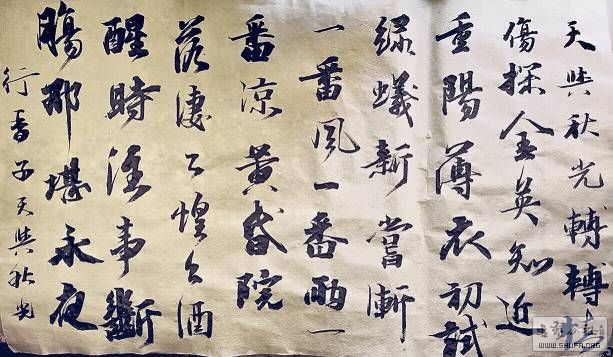 天與秋光轉轉情
傷探金英知近
重陽薄衣初試
綠蟻新嘗漸
一番風一番雨一
番涼黄昏院
落淒々惶々酒
醒時往事斷
腸那堪永夜
行香子天與秋光
WWW.SHUFA.ORG